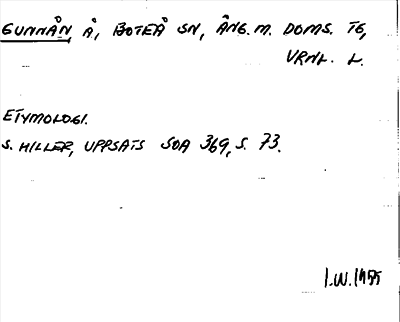 GUNNÅN Å, BOTEÅ SN, ÅNG. M. DOMS. TG,
VRNL. L.
ETYMOLOGI.
S. HILLER, UPPSATS SOA 369, S. 73.
I.W. 1955